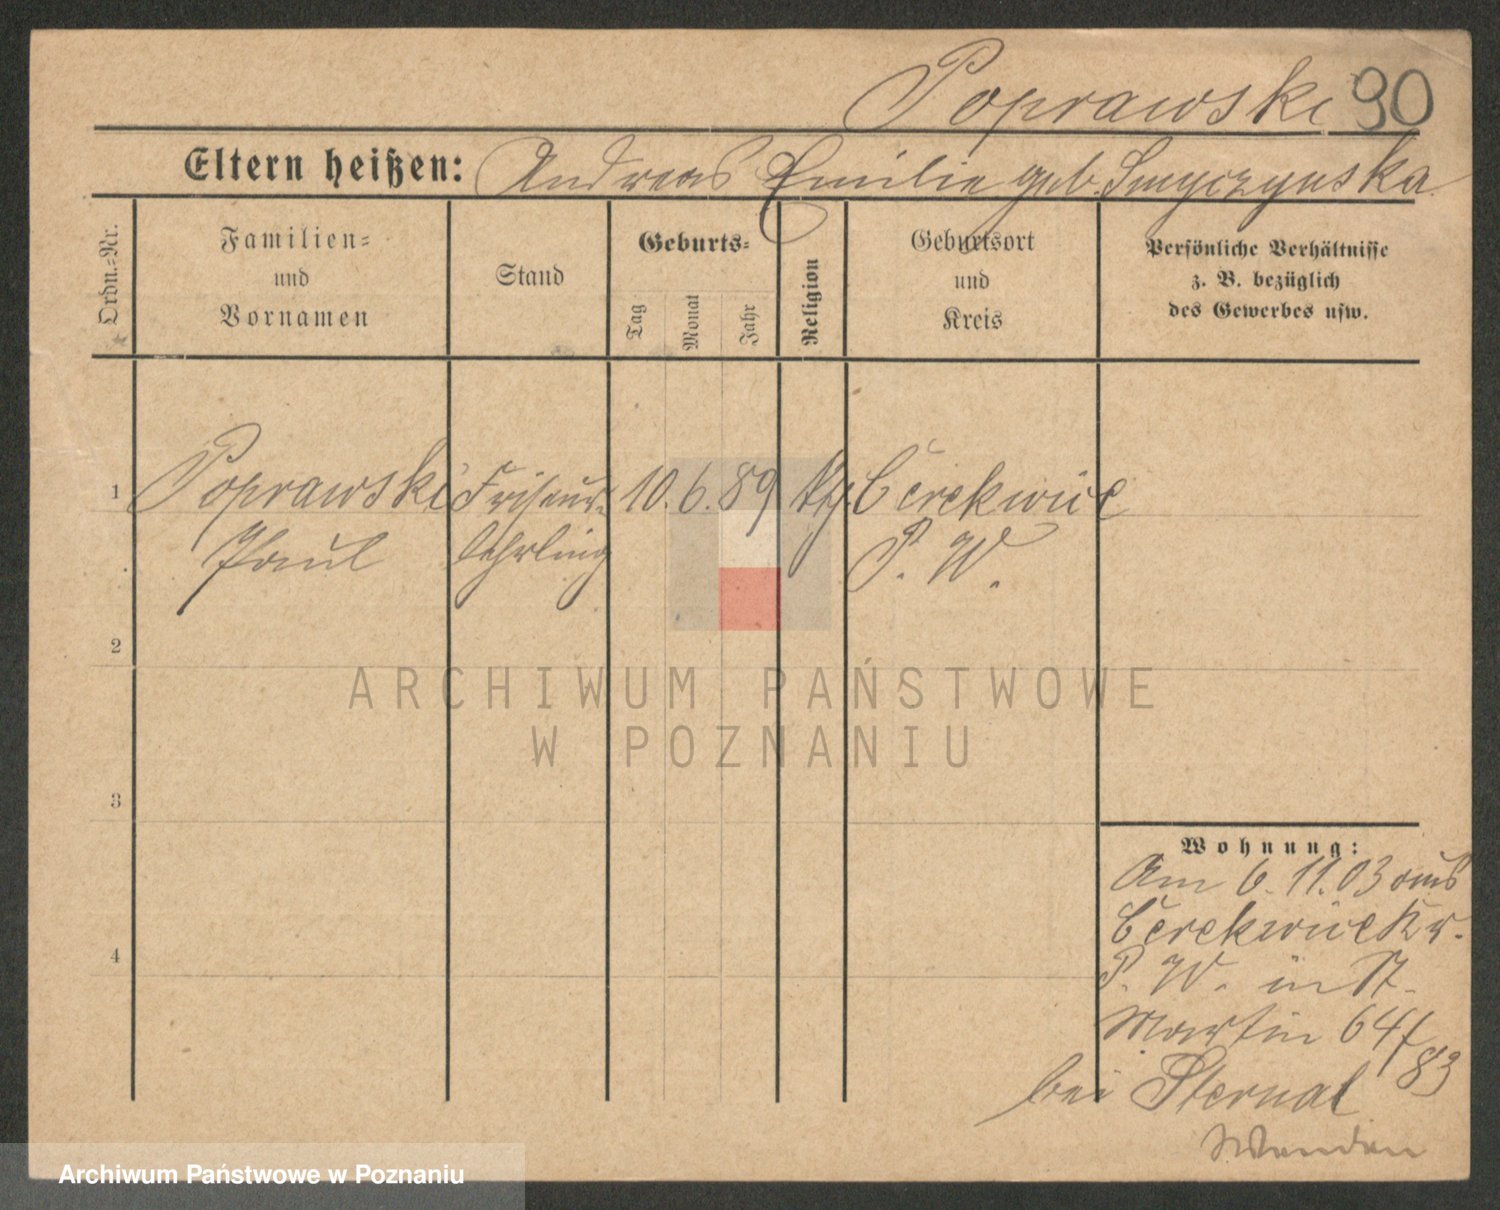 Poprawski 90
Eltern heißen: Andreas Emilie geb. Smyczynska
Ordn.-Nr.
Familien-
und
Vornamen
Stand
Geburts-
Tag
Monat
Jahr
Religion
Geburtsort
und
Kreis
Persönliche Verhältnisse
z. B. bezüglich
des Gewerbes usw.
1 Poprawski Friseur- 10. 6. 89 Cerekwice
Paul lehrling P. W.
2
3
4
Wohnung:
Am 6. 11. 03 aus
Cerekwice Kr.
P. W. in St.
Martin 64/
83
bei Sternal
Wenden
ARCHIWUM PAŃSTWOWE
W POZNANIU
Archiwum Państwowe w Poznaniu